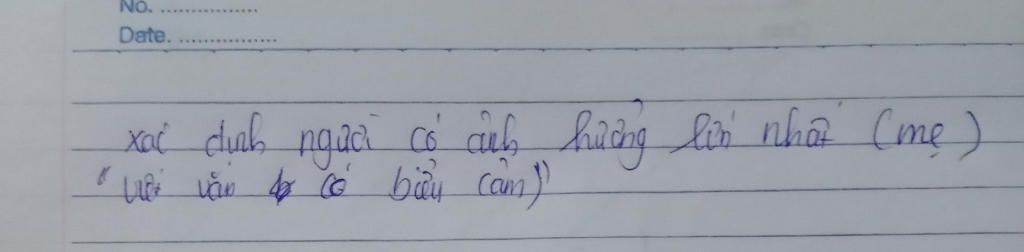 No. ................
Date. ................
xác định người có ảnh hưởng lớn nhất (mẹ)
" văn có biểu cảm)"